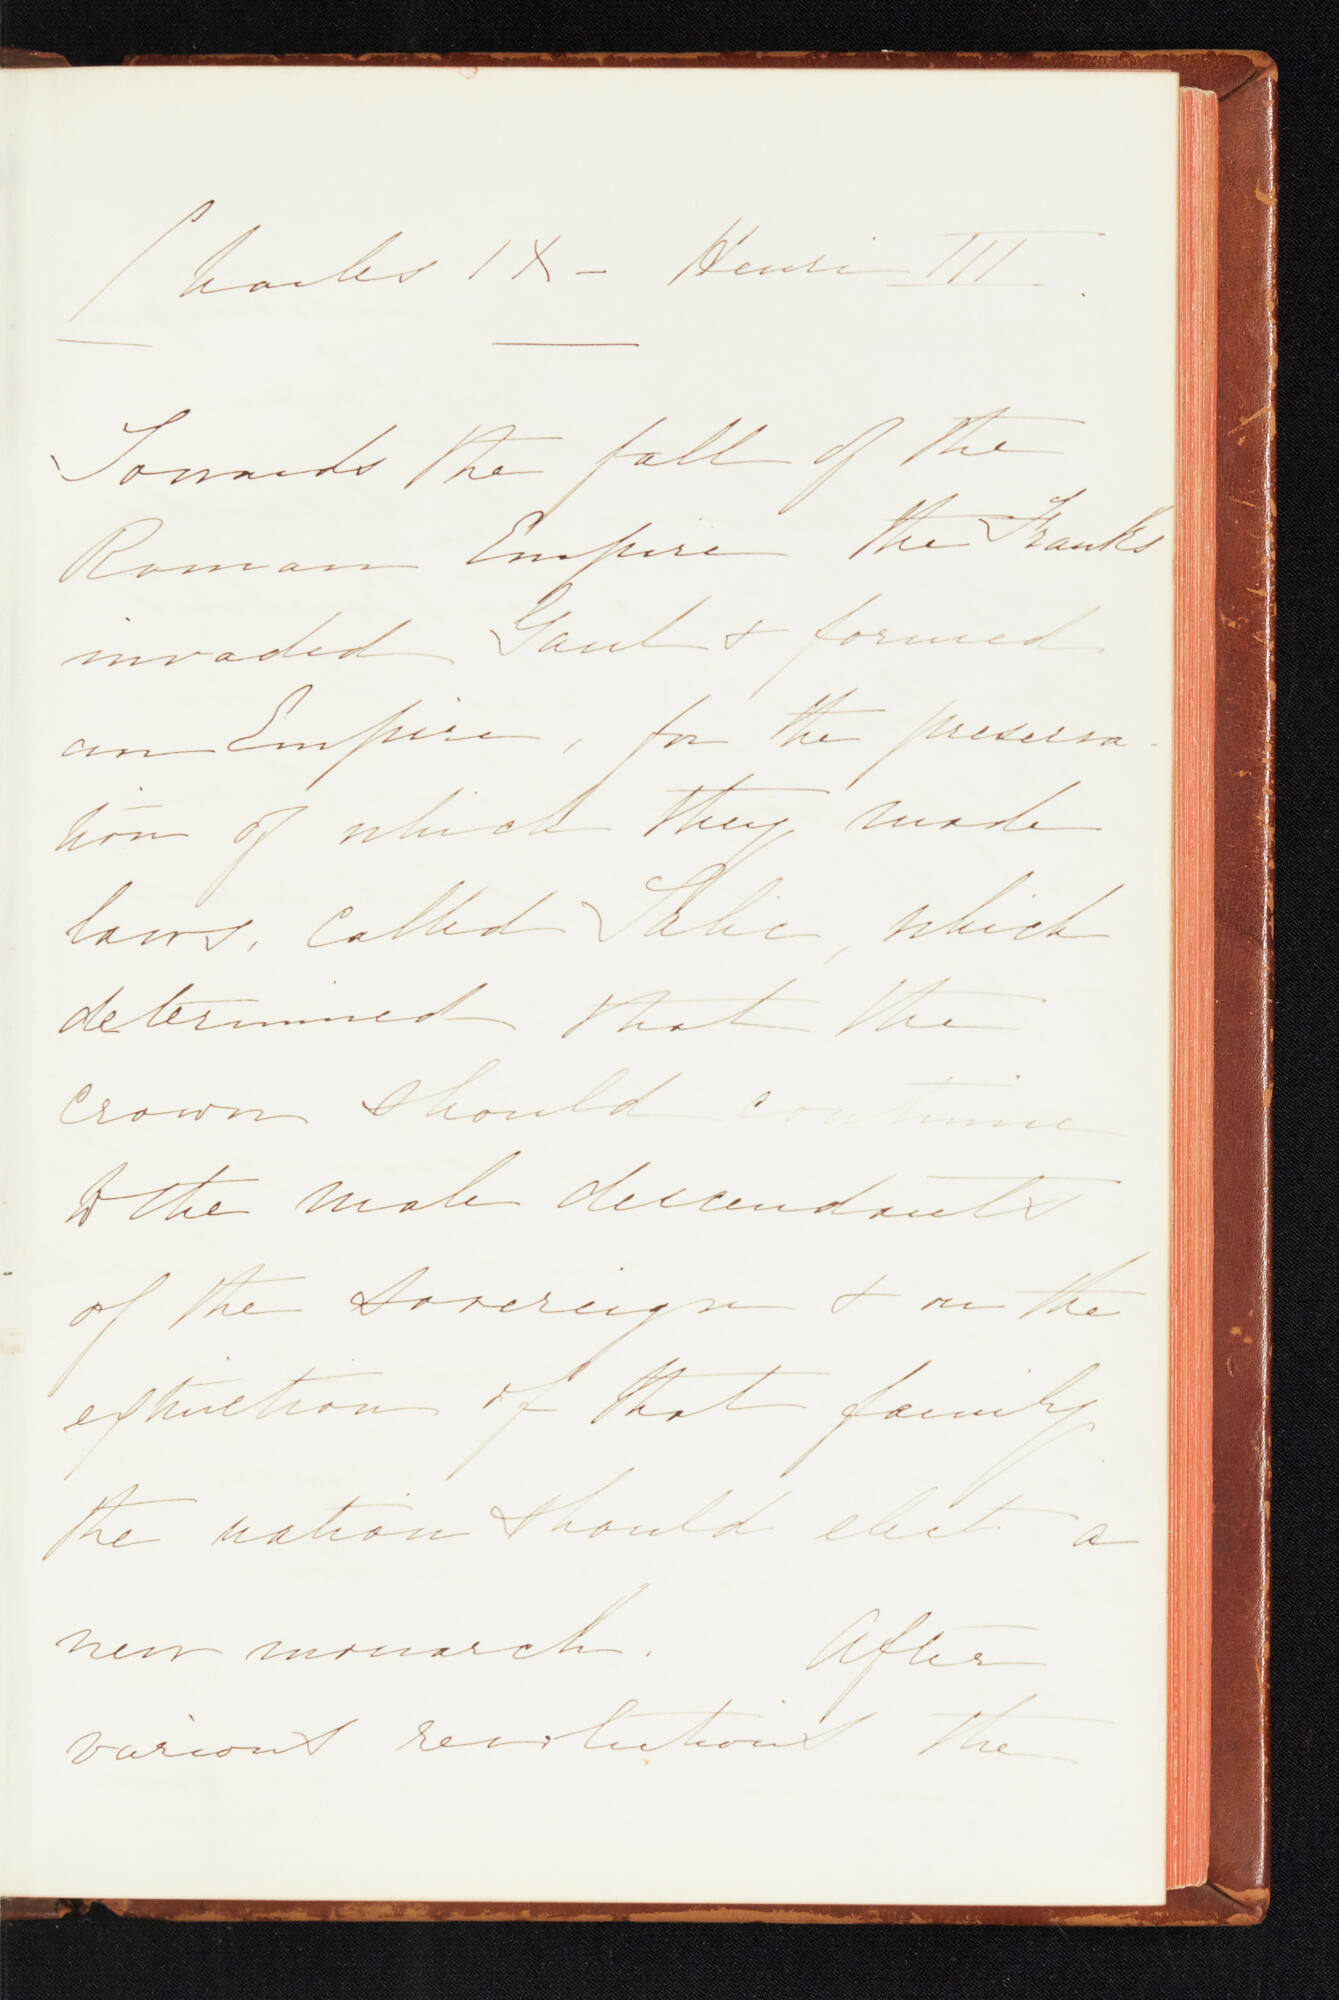 Charles IX - Henri III.
Towards the fall of the
Roman Empire the Franks
invaded Gaul & formed
an Empire, for the preserva-
tion of which they made
laws, called Salic, which
determined that the
crown should continue
to the male descendants
of the sovereign & on the
extinction of that family
the nation should elect a
new monarch. After
various revolutions the